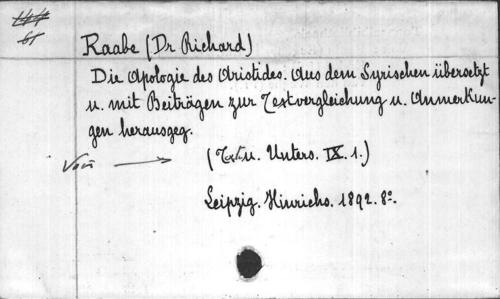 61
Raabe (Dr Richard)
Die Apologie des Aristides. Aus dem Syrischen übersetzt
u. mit Beiträgen zur Textvergleichung u. Anmerkun-
gen herausgeg.
Voir (Text u. Unters. IX. 1.)
Leipzig. Hinrichs. 1892. 8º.